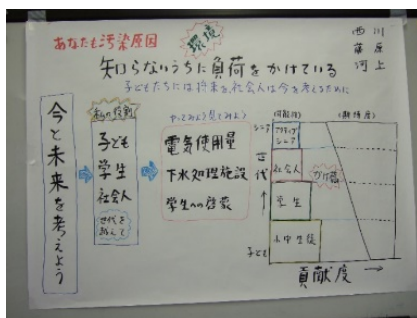 あなたも汚染原因
環境
西川
藤原
河上
知らないうちに負荷をかけている
子どもたちには将来を、社会人は今を考えるために
今と未来を考えよう
私の役割
子ども
学生
社会人
世代を越えて
やってみよう見てみよう
電気使用量
下水処理施設
学生への啓蒙
シニア
世代
子ども
アクティブ
シニア
社会人
学生
小中生徒
(期待度)
貢献度 →